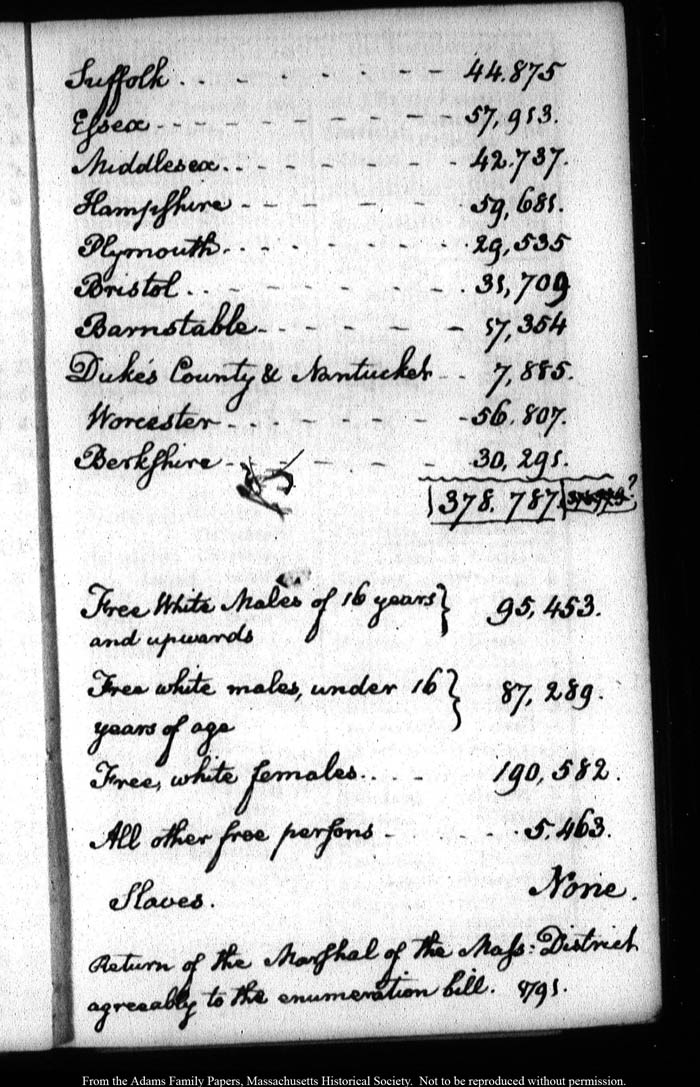 Suffolk . . - - . . . - - 44.875
Essex - - - - - - - - - 57,913.
Middlesex . . - - - - - - 42.737.
Hampshire - - - - - - 59,681.
Plymouth . . - - - - - . 29,535
Bristol . . - - - - - . 31,709
Barnstable - - - - - - 17,354
Duke's County & Nantucket - - 7,885.
Worcester - - - - - - - 56.807.
Berkshire - - - - - 30,291.
378.787
Free White Males of 16 years } 95,453.
and upwards
Free white males, under 16 } 87,289.
years of age
Free, white females . . . - 190,582.
All other free persons - . - . 5.463.
Slaves. None.
Return of the Marshal of the Mass: District
agreeably to the enumeration bill. 1791.
From the Adams Family Papers, Massachusetts Historical Society. Not to be reproduced without permission.